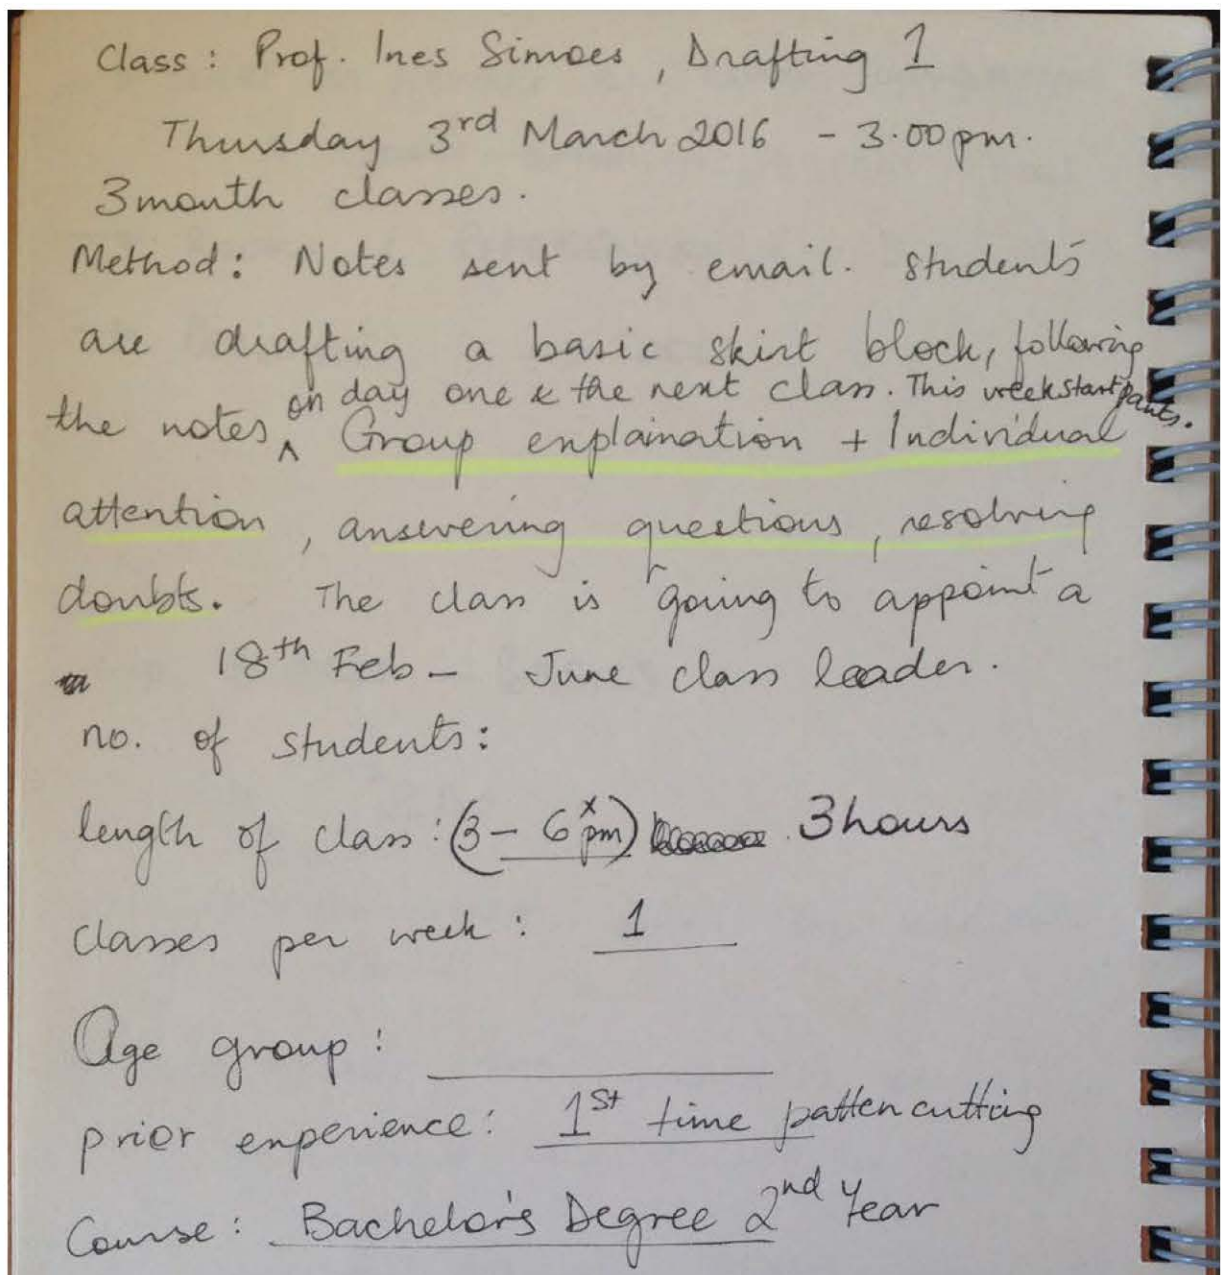 Class: Prof. Ines Simoes, Drafting 1
Thursday 3rd March 2016 - 3.00pm.
3month classes.
Method: Notes sent by email. Students
are drafting a basic skirt block, following
on day one & the next class. This week start pants.
the notes, ^ Group explaination + Individual
attention, answering questions, resolving
doubts. The class is going to appoint a
18th Feb - June class leader.
no. of students:
length of class: (3 - 6 pm) 3hours
classes per week: 1
Age group:
prior experience: 1st time patten cutting
Course: Bachelor's Degree 2nd Year